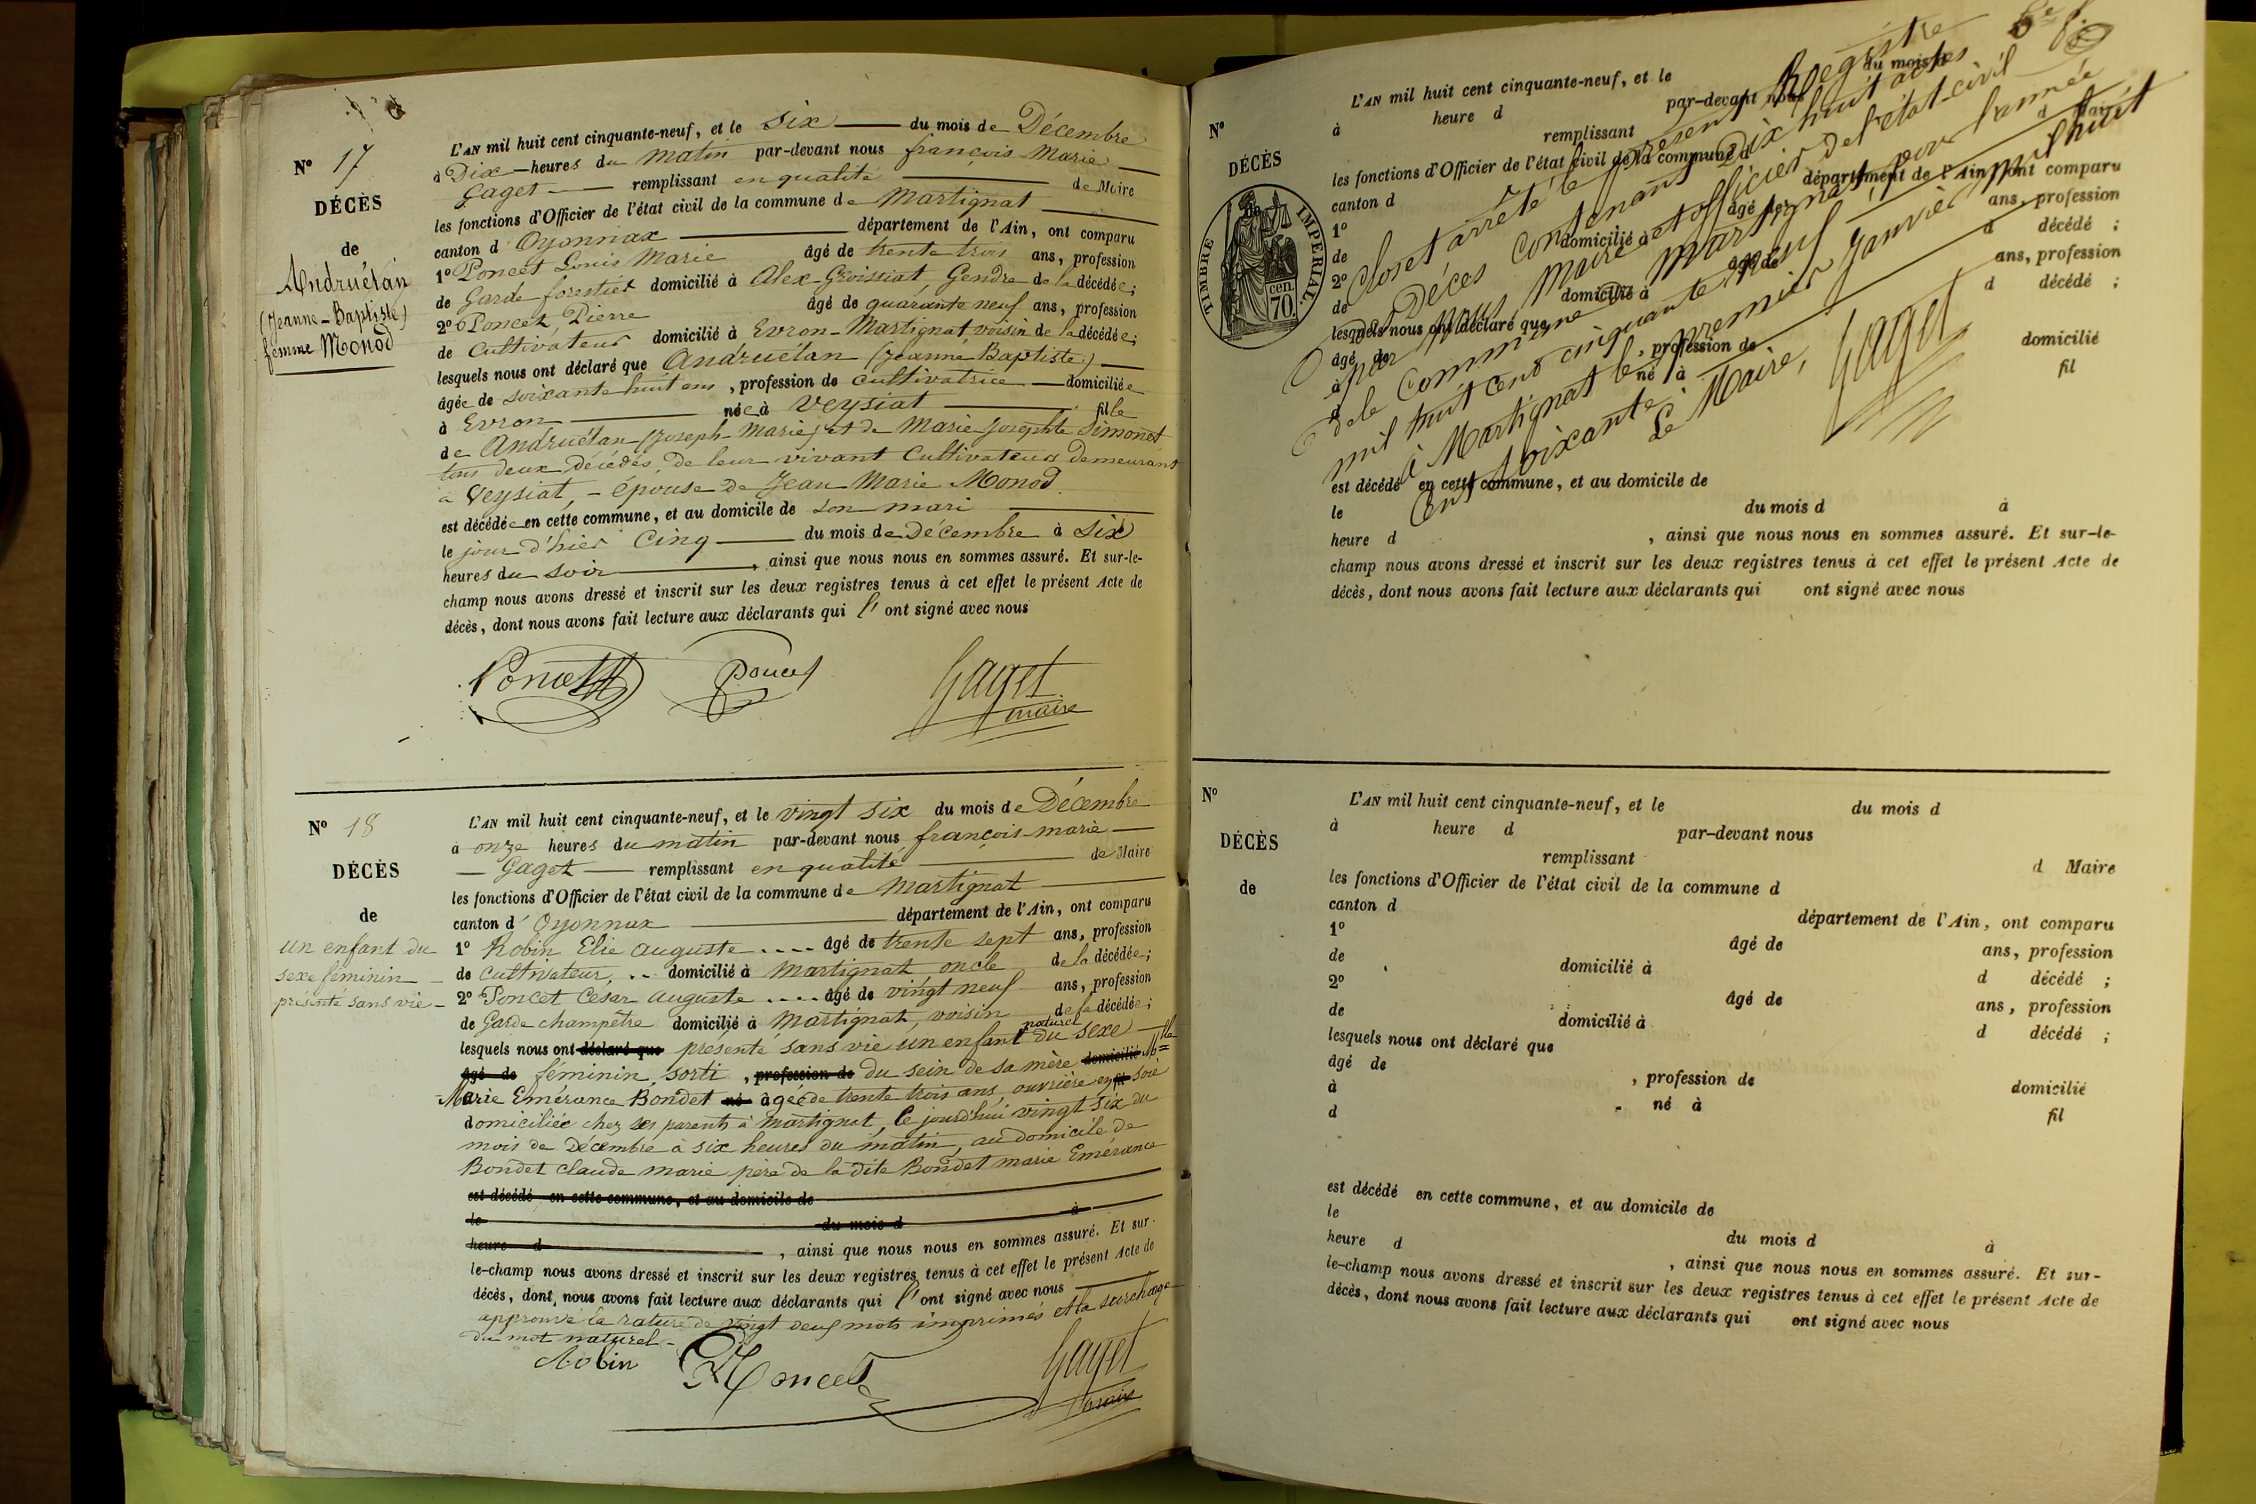 N° 17
DÉCÈS
de
Andruétan
(Jeanne-Baptiste)
femme Monod
L'AN mil huit cent cinquante-neuf, et le six du mois de Décembre
à Dix heures du matin par-devant nous françois Marie
Gaget remplissant en qualité de Maire
les fonctions d'Officier de l'état civil de la commune de Martignat
canton d'Oyonnax département de l'Ain, ont comparu
1° Poncet Louis Marie âgé de trente trois ans, profession
de Garde forestier domicilié à Alex-Groissiat, Gendre de la décédée;
2° Poncet, Pierre âgé de quarante neuf ans, profession
de Cultivateur domicilié à Evron-Martignat, voisin de la décédée;
lesquels nous ont déclaré que Andruétan (Jeanne Baptiste)
âgée de soixante huit ans, profession de cultivatrice domiciliée
à Evron née à Veysiat fille
de Andruétan (Joseph-Marie) et de Marie Josephte Simonet
tous deux décédés, de leur vivant Cultivateurs demeurant
à Veysiat, - épouse de Jean Marie Monod
est décédée en cette commune, et au domicile de son mari
le jour d'hier Cinq du mois de Décembre à six
heures du soir, ainsi que nous nous en sommes assuré. Et sur-le-
champ nous avons dressé et inscrit sur les deux registres tenus à cet effet le présent Acte de
décès, dont nous avons fait lecture aux déclarants qui l'ont signé avec nous
Poncet Poncet Gaget
maire
N° 18
DÉCÈS
de
un enfant du
sexe féminin
présenté sans vie
L'AN mil huit cent cinquante-neuf, et le vingt six du mois de Décembre
à onze heures du matin par-devant nous françois-marie
Gaget remplissant en qualité de Maire
les fonctions d'Officier de l'état civil de la commune de Martignat
canton d'Oyonnax département de l'Ain, ont comparu
1° Robin Elie Auguste .... âgé de trente sept ans, profession
de Cultivateur .. domicilié à Martignat oncle de la décédée;
2° Poncet César Auguste .... âgé de vingt neuf ans, profession
de Garde champêtre domicilié à Martignat, voisin de la décédée;
naturel
lesquels nous ont déclaré que présenté sans vie un enfant du sexe
âgé de féminin, sorti, profession de du sein de sa mère domicilié Mlle
Marie Emérance Bondet né âgée de trente trois ans, ouvrière en fil soie
domiciliée chez ses parents à Martignat, le jourd'hui vingt six du
mois de Décembre à six heures du matin, au domicile de
Bondet Claude marie père de la dite Bondet marie Emérance
est décédé en cette commune, et au domicile de
le du mois d à
heure d , ainsi que nous nous en sommes assuré. Et sur-
le-champ nous avons dressé et inscrit sur les deux registres tenus à cet effet le présent Acte de
décès, dont nous avons fait lecture aux déclarants qui l'ont signé avec nous
approuvé la rature de vingt deux mots imprimés et la surcharge
du mot naturel -
Robin Poncet Gaget
maire
N°
DÉCÈS
de
TIMBRE IMPÉRIAL.
70 cen.
L'AN mil huit cent cinquante-neuf, et le du mois d
à heure d par-devant nous
remplissant d Maire
les fonctions d'Officier de l'état civil de la commune d
canton d département de l'Ain, ont comparu
1° âgé de ans, profession
de domicilié à d décédé ;
2° âgé de ans, profession
de domicilié à d décédé ;
lesquels nous ont déclaré que
âgé de , profession de domicilié
à né à fil
d
Clos et arrêté le présent Registre
des Décès Contenant Dix huit actes
par nous Maire et officier de l'état-civil
de la Commune de Martignat, pour l'année
mil huit cent cinquante neuf
à Martignat le premier Janvier mil huit
cent soixante.
Le Maire,
Gaget
est décédé en cette commune, et au domicile de
le du mois d à
heure d , ainsi que nous nous en sommes assuré. Et sur-le-
champ nous avons dressé et inscrit sur les deux registres tenus à cet effet le présent Acte de
décès, dont nous avons fait lecture aux déclarants qui ont signé avec nous
N°
DÉCÈS
de
L'AN mil huit cent cinquante-neuf, et le du mois d
à heure d par-devant nous
remplissant d Maire
les fonctions d'Officier de l'état civil de la commune d
canton d département de l'Ain, ont comparu
1° âgé de ans, profession
de domicilié à d décédé ;
2° âgé de ans, profession
de domicilié à d décédé ;
lesquels nous ont déclaré que
âgé de , profession de domicilié
à né à fil
d
est décédé en cette commune, et au domicile de
le du mois d à
heure d , ainsi que nous nous en sommes assuré. Et sur-
le-champ nous avons dressé et inscrit sur les deux registres tenus à cet effet le présent Acte de
décès, dont nous avons fait lecture aux déclarants qui ont signé avec nous